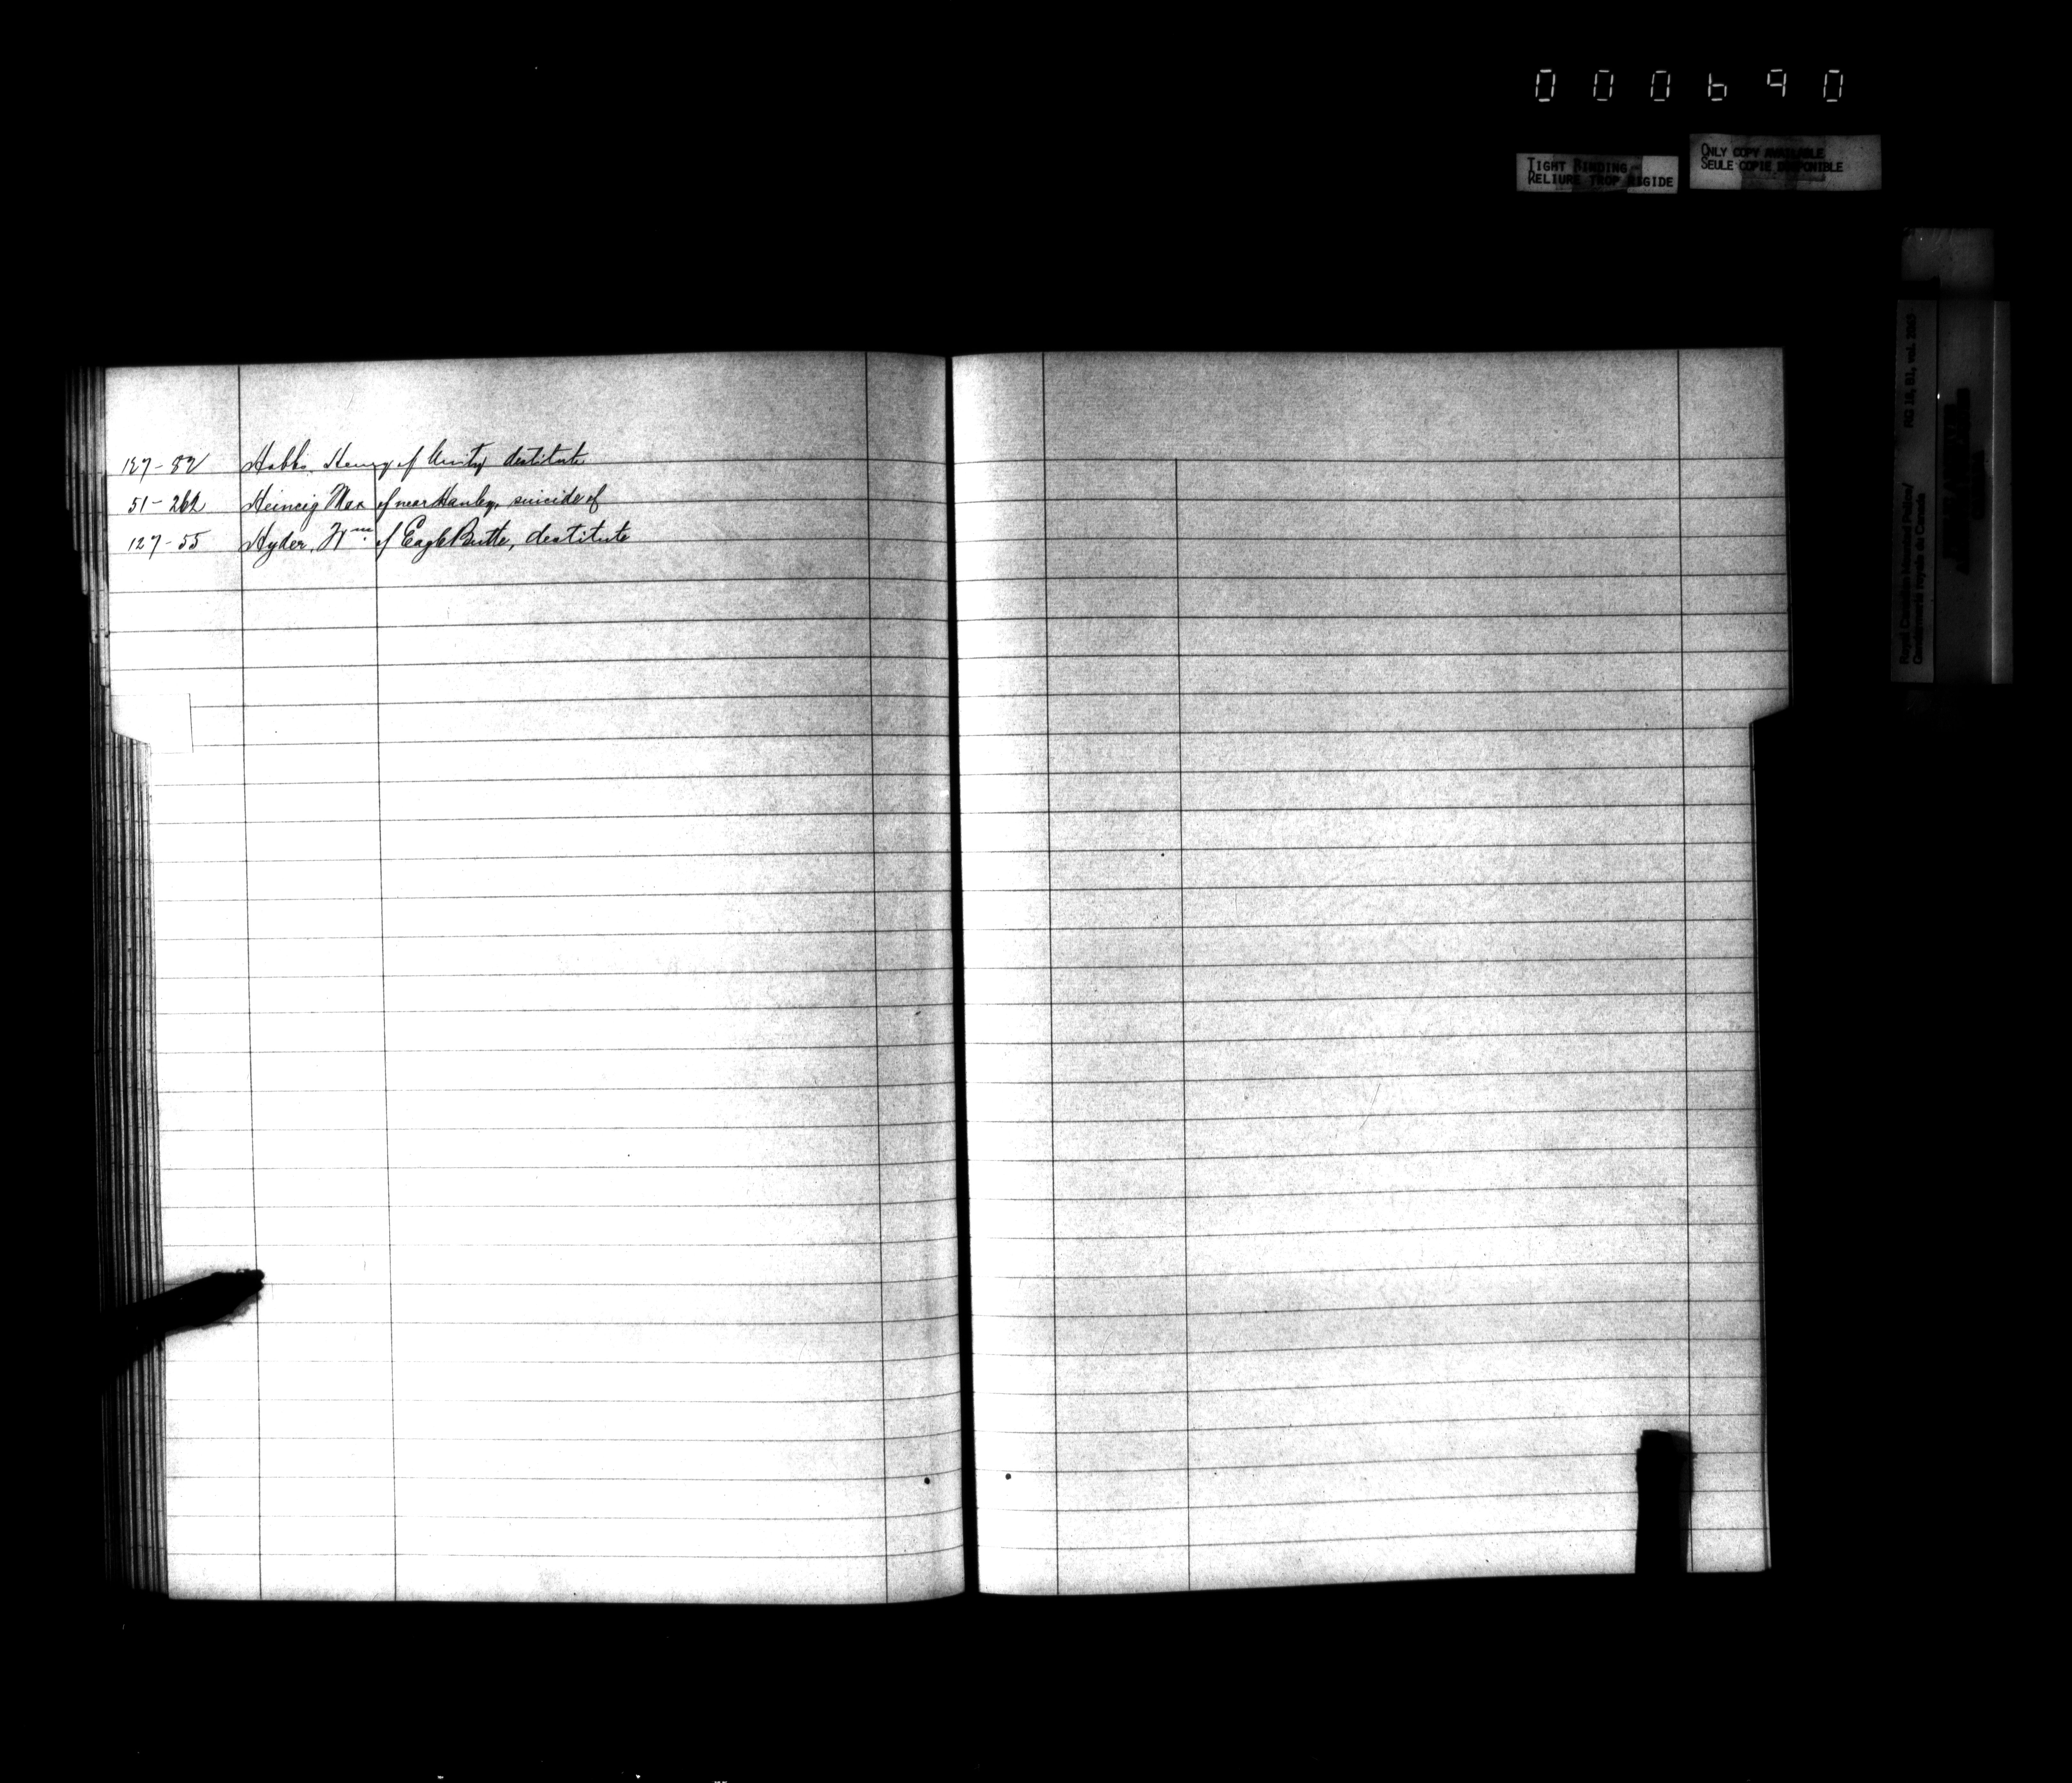 000690
TIGHT BINDING
RELIURE TROP RIGIDE
ONLY COPY AVAILABLE
SEULE COPIE DISPONIBLE
Royal Canadian Mounted Police/
Gendarmerie royale du Canada
RG 18, B1, vol.
127-82 Hobbs, Henry of Unity destitute
51-262 Heincig Max of near Hanley, suicide of
127-55 Hyder, Wm of Eagle Butte, destitute